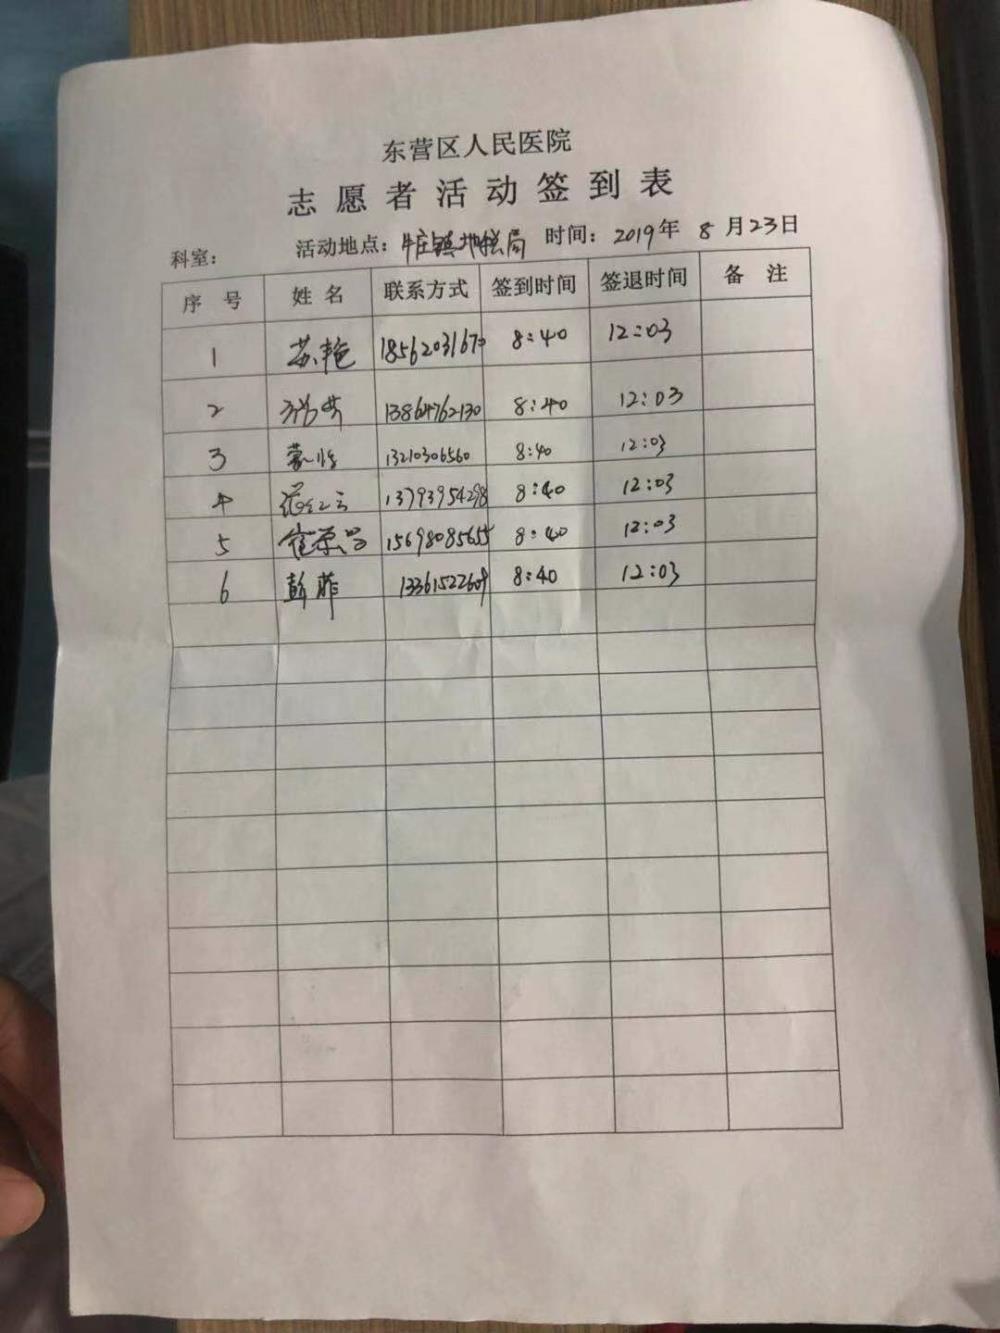 东营区人民医院
志愿者活动签到表
科室： 活动地点：牛庄镇地税局 时间：2019年 8 月23日
序 号 姓 名 联系方式 签到时间 签退时间 备 注
1 苏艳 8:40 12:03
2 13864762130 8:40 12:03
3 13210306560 8:40 12:03
4 13793954298 8:40 12:03
5 15698085655 8:40 12:03
6 彭菲 13361522609 8:40 12:03